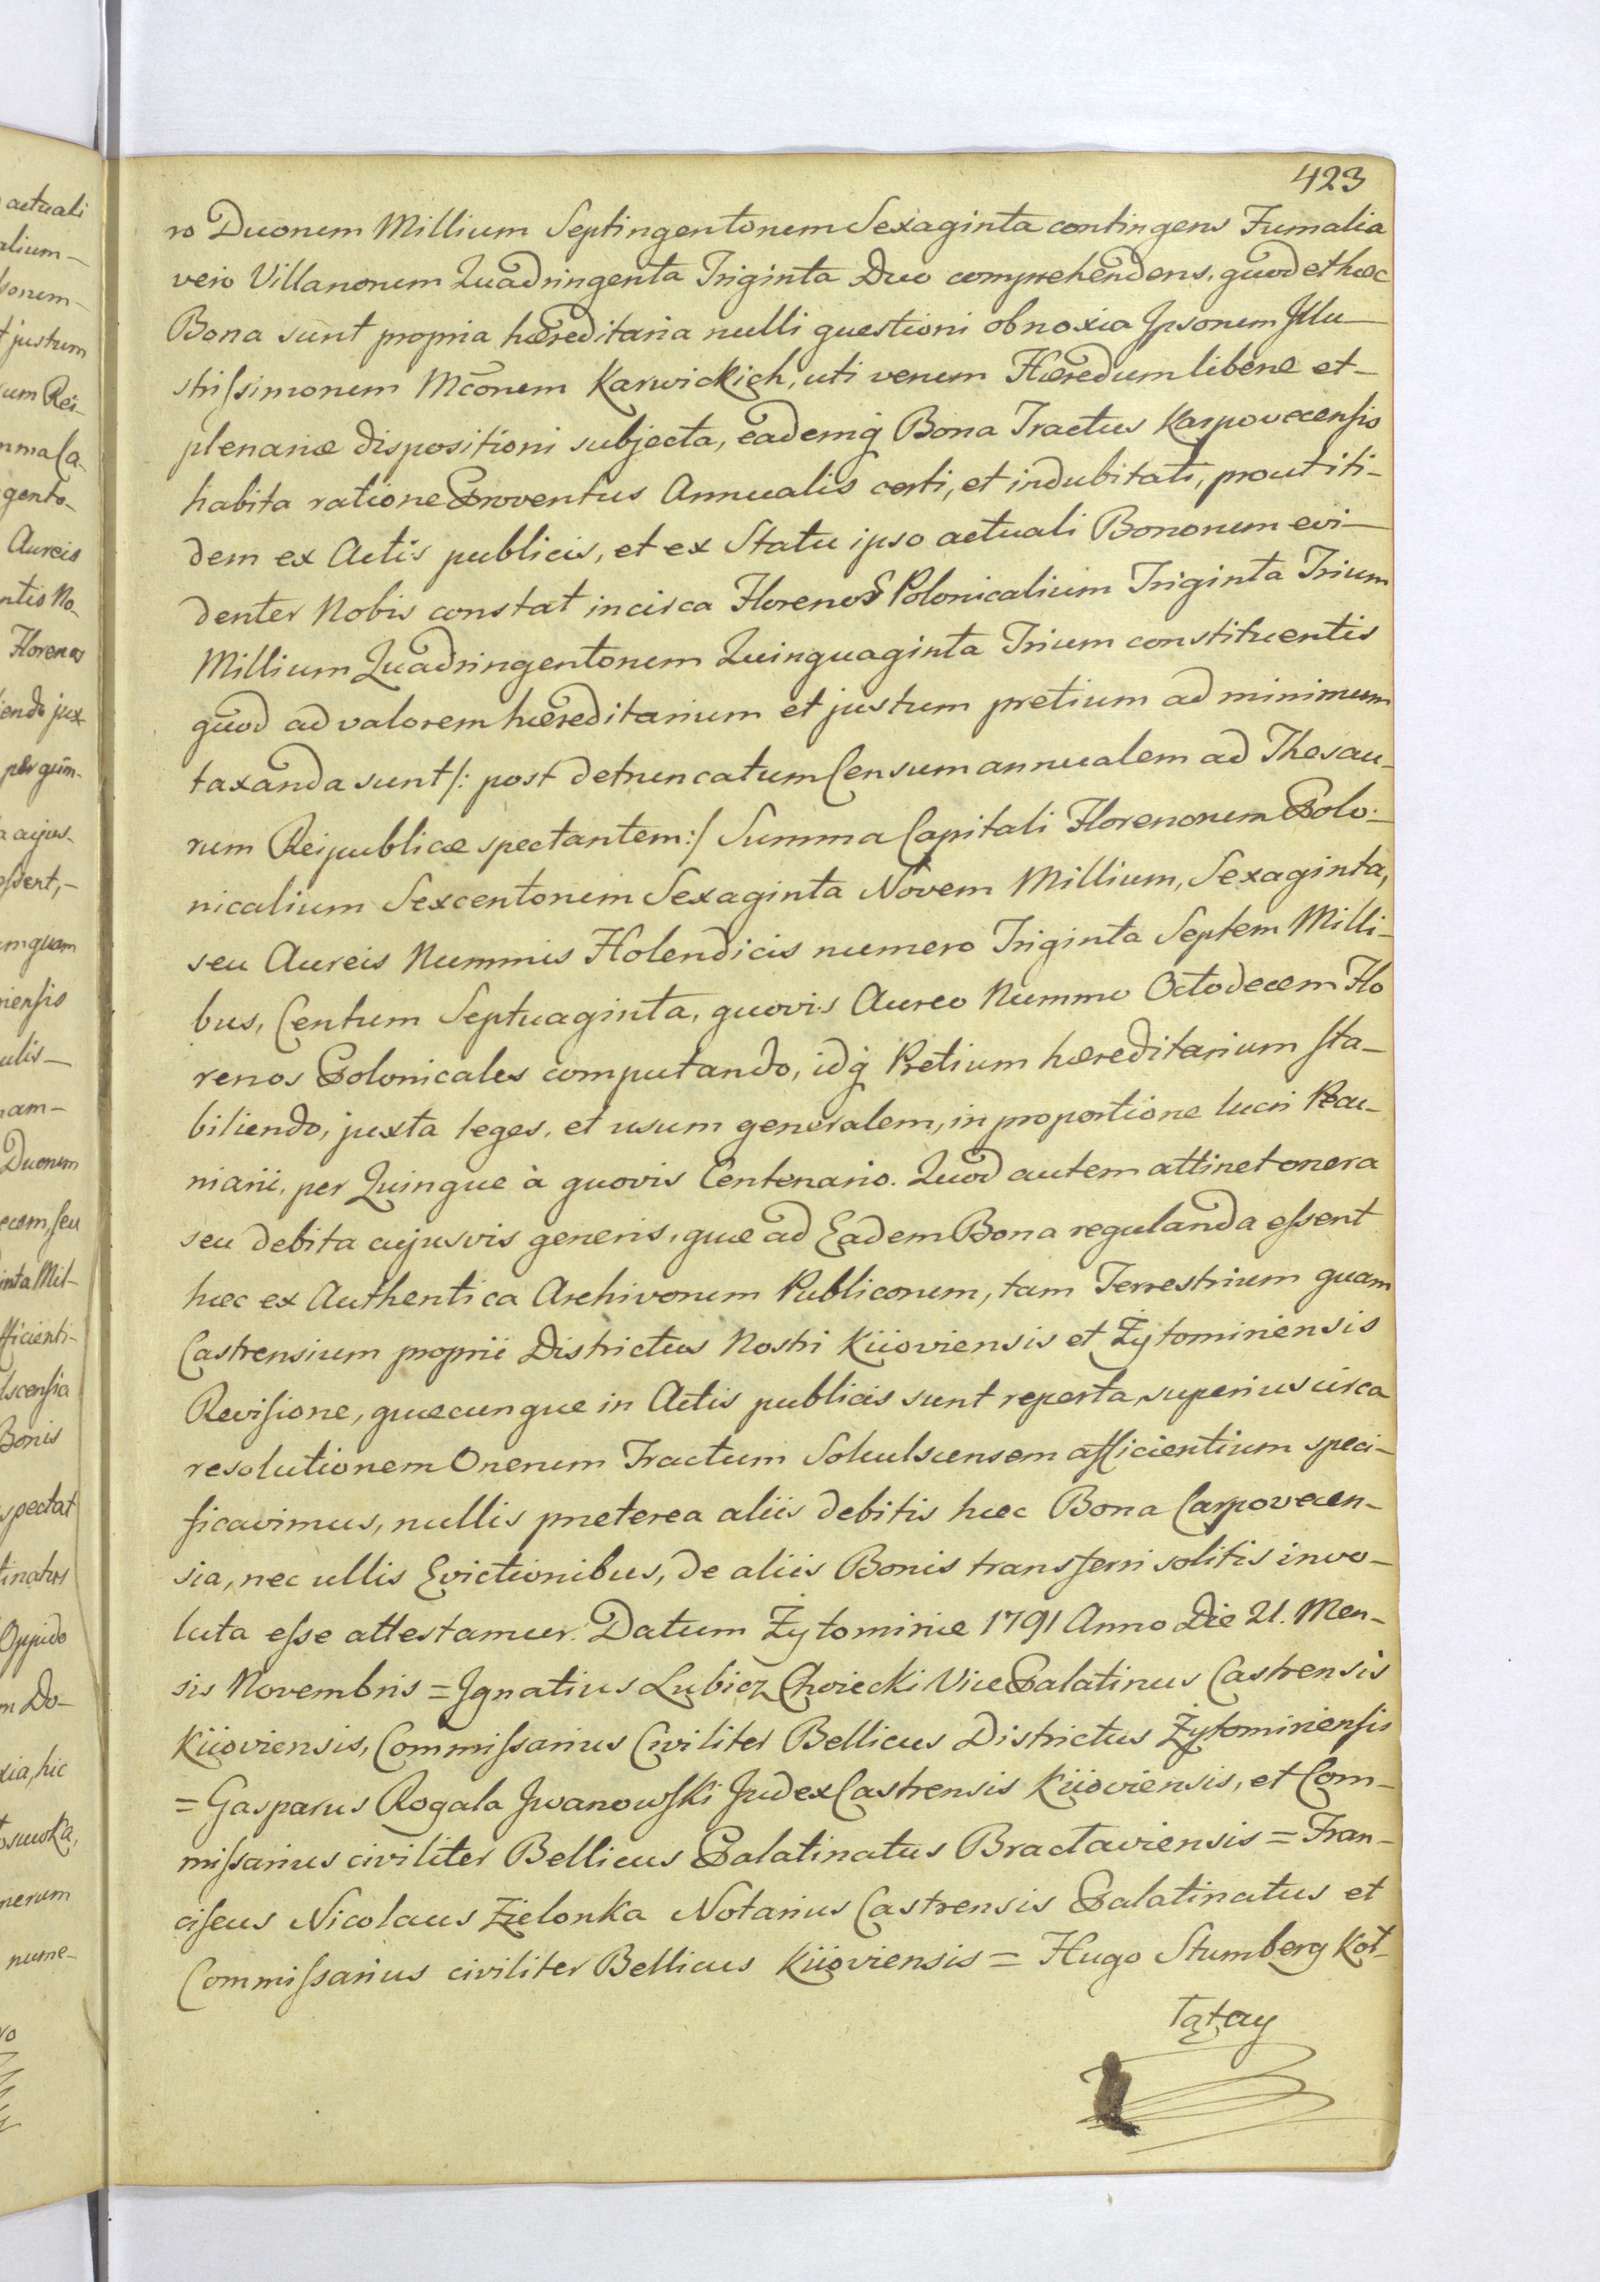 423
ro Duorum Millium Septingentorum Sexaginta contingens Fumalia
vero Villanorum Quadringenta Triginta Duo comprehendens, quod et hæc
Bona sunt propria hæreditaria nulli questioni obnoxia Ipsorum Illu-
strissimorum Mcorum Karwickich, uti verum Hæredum liberæ et-
plenariæ dispositioni subjecta, eademq Bona Tractus Karpovecensis
habita ratione Proventus Annualis certi, et indubitati, prout iti-
dem ex Actis publicis, et ex Statu ipso actuali Bonorum evi-
denter Nobis constat in circa Florenos Polonicalium Triginta Trium
Millium Quadringentorum Quinquaginta Trium constituentis
quod ad valorem hæreditarium et justum pretium ad minimum
taxanda sunt /: post detruncatum Censum annualem ad Thesau-
rum Reipublicæ spectantem :/ Summa Capitali Florenorum Polo-
nicalium Sexcentorum Sexaginta Novem Millium, Sexaginta,
seu Aureis Nummis Holendicis numero Triginta Septem Milli-
bus, Centum Septuaginta, quovis Aureo Nummo Octodecem Flo
renos Polonicales computando, idq Pretium hæreditarium sta-
biliendo, juxta leges, et usum generalem, in proportione lucri Pecu-
niarii, per Quinque à quovis Centenario. Quod autem attinet onera
seu debita cujusvis generis, quæ ad Eadem Bona regulanda essent
hæc ex Authentica Archivorum Publicorum, tam Terrestrium quam
Castrensium proprii Districtus Nostri Kiioviensis et Żytomiriensis
Revisione, quæcunque in Actis publicis sunt reperta, superius circa
resolutionem Onerum Tractum Soluulscensem afficientium speci-
ficavimus, nullis præterea aliis debitis hæc Bona Carpovecen-
sia, nec ullis Evictionibus, de aliis Bonis transferri solitis invo-
luta esse attestamur. Datum Żytomiriæ 1791 Anno Die 21. Men-
sis Novembris = Ignatius Lubicz Choiecki Vice Palatinus Castrensis
Kiioviensis, Commissarius Civiliter Bellicus Districtus Żytomiriensis
= Gasparus Rogala Iwanowski Judex Castrensis Kiioviensis, et Com-
missarius civiliter Bellicus Palatinatus Bractaviensis = Fran-
ciscus Nicolaus Zielonka Notarius Castrensis Palatinatus et
Commissarius civiliter Bellicus Kiioviensis = Hugo Stumberg Kot-